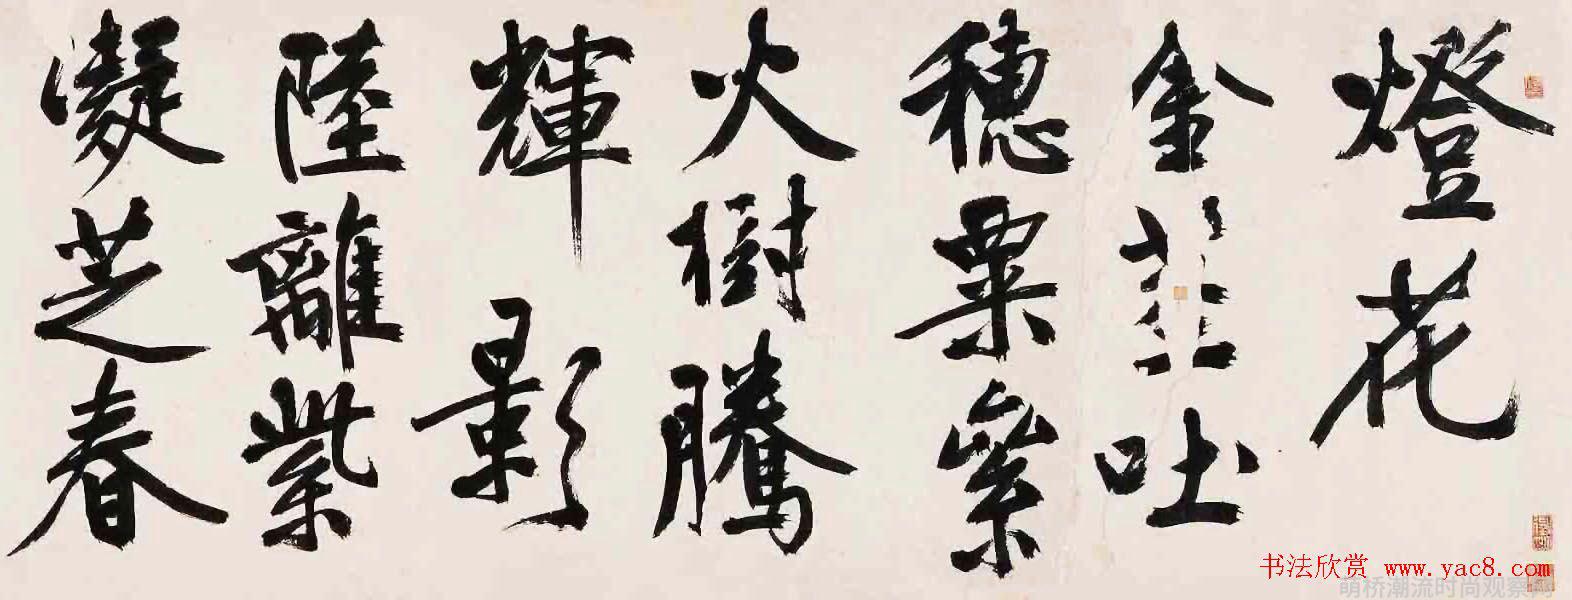 燈花
金韭吐
穗粟
火樹騰
輝影
陸離紫
凝芝春
书法欣赏 www.yac8.com
萌桥潮流时尚观察网